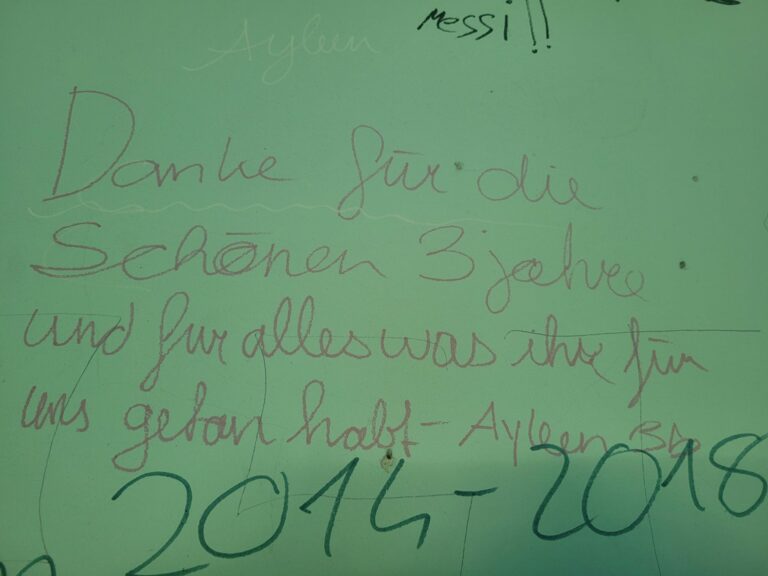 Messi!!
Ayleen
Danke für die
Schönen 3 jahre
und fur alles was ihr für
uns getan habt - Ayleen 3b
2014-2018